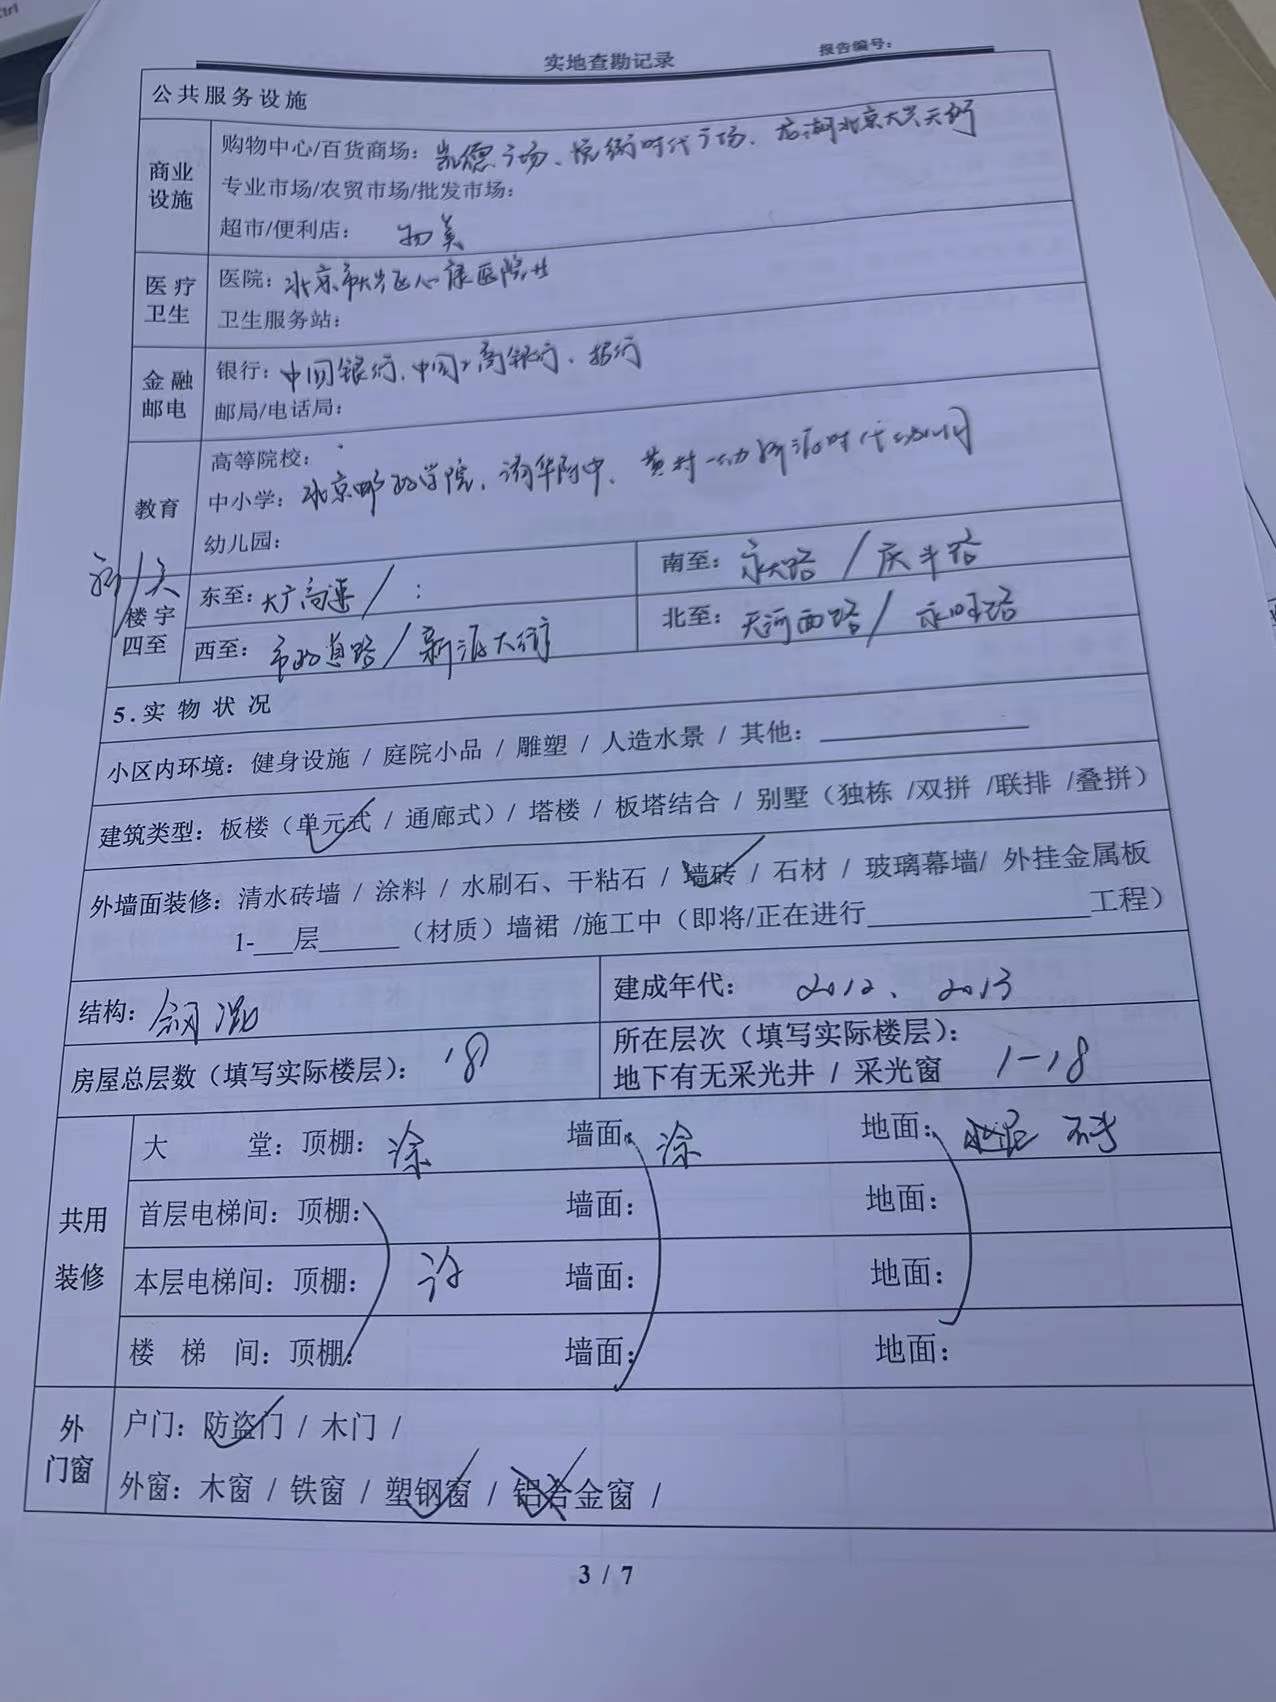 实地查勘记录 报告编号：
公共服务设施
商业设施
购物中心/百货商场：凯德广场、悦街时代广场、龙湖北京大兴天街
专业市场/农贸市场/批发市场：
超市/便利店：物美
医疗卫生
医院：北京市大兴区心康医院
卫生服务站：
金融邮电
银行：中国银行、中国工商银行、招行
邮局/电话局：
教育
高等院校：
中小学：北京邮政学院、清华附中、黄村一幼新源时代幼儿园
幼儿园：
楼宇四至
东至：大广高速/ ：
南至：永大路/庆丰路
西至：市政道路/新源大街
北至：天河西路/永旺路
5.实物状况
小区内环境：健身设施 / 庭院小品 / 雕塑 / 人造水景 / 其他：
建筑类型：板楼（单元式 / 通廊式）/ 塔楼 / 板塔结合 / 别墅（独栋 /双拼 /联排 /叠拼）
外墙面装修：清水砖墙 / 涂料 / 水刷石、干粘石 / 墙砖 / 石材 / 玻璃幕墙/ 外挂金属板
1-___层______（材质）墙裙 /施工中（即将/正在进行_______________工程）
结构：钢混
建成年代：2012、2013
房屋总层数（填写实际楼层）：18
所在层次（填写实际楼层）：
地下有无采光井 / 采光窗 1-18
共用装修
大 堂：顶棚：涂 墙面：涂 地面： 砖
首层电梯间：顶棚： 墙面： 地面：
本层电梯间：顶棚：涂 墙面： 地面：
楼 梯 间：顶棚： 墙面： 地面：
外门窗
户门：防盗门 / 木门 /
外窗：木窗 / 铁窗 / 塑钢窗 / 铝合金窗 /
3 / 7